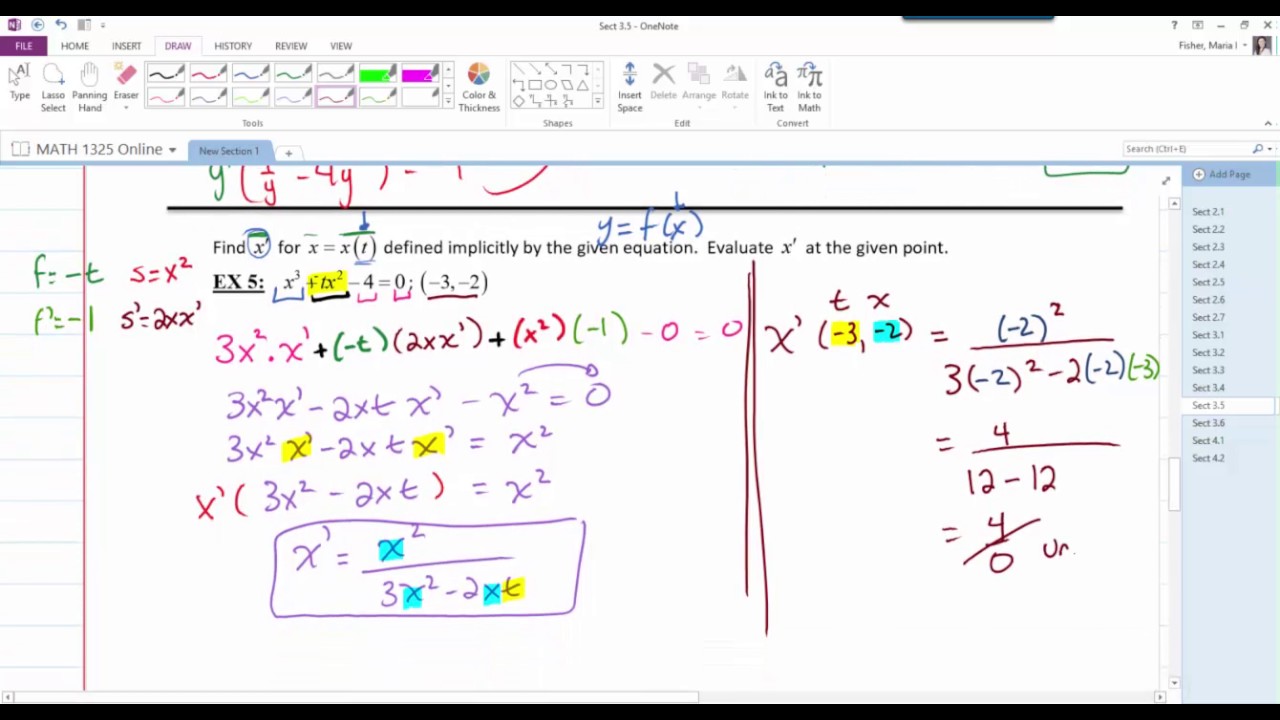 Sect 3.5 - OneNote
Fisher, Maria I
FILE HOME INSERT DRAW HISTORY REVIEW VIEW
Type
Lasso Select
Panning Hand
Eraser
Color & Thickness
Insert Space
Delete
Arrange
Rotate
Ink to Text
Ink to Math
Tools
Shapes
Edit
Convert
MATH 1325 Online
New Section 1
Search (Ctrl+E)
Add Page
Sect 2.1
Sect 2.2
Sect 2.3
Sect 2.4
Sect 2.5
Sect 2.6
Sect 2.7
Sect 3.1
Sect 3.2
Sect 3.3
Sect 3.4
Sect 3.5
Sect 3.6
Sect 4.1
Sect 4.2
y = f(x)
Find x' for x = x(t) defined implicitly by the given equation. Evaluate x' at the given point.
EX 5: x³ + tx² − 4 = 0; (−3, −2)
f = −t s = x²
f' = −1 s' = 2xx'
3x² · x' + (−t)(2xx') + (x²)(−1) − 0 = 0
3x²x' − 2xt x' − x² = 0
3x² x' − 2xt x' = x²
x'(3x² − 2xt) = x²
x' = x² / (3x² − 2xt)
t x
x'(−3, −2) = (−2)² / (3(−2)² − 2(−2)(−3))
= 4 / (12 − 12)
= 4/0